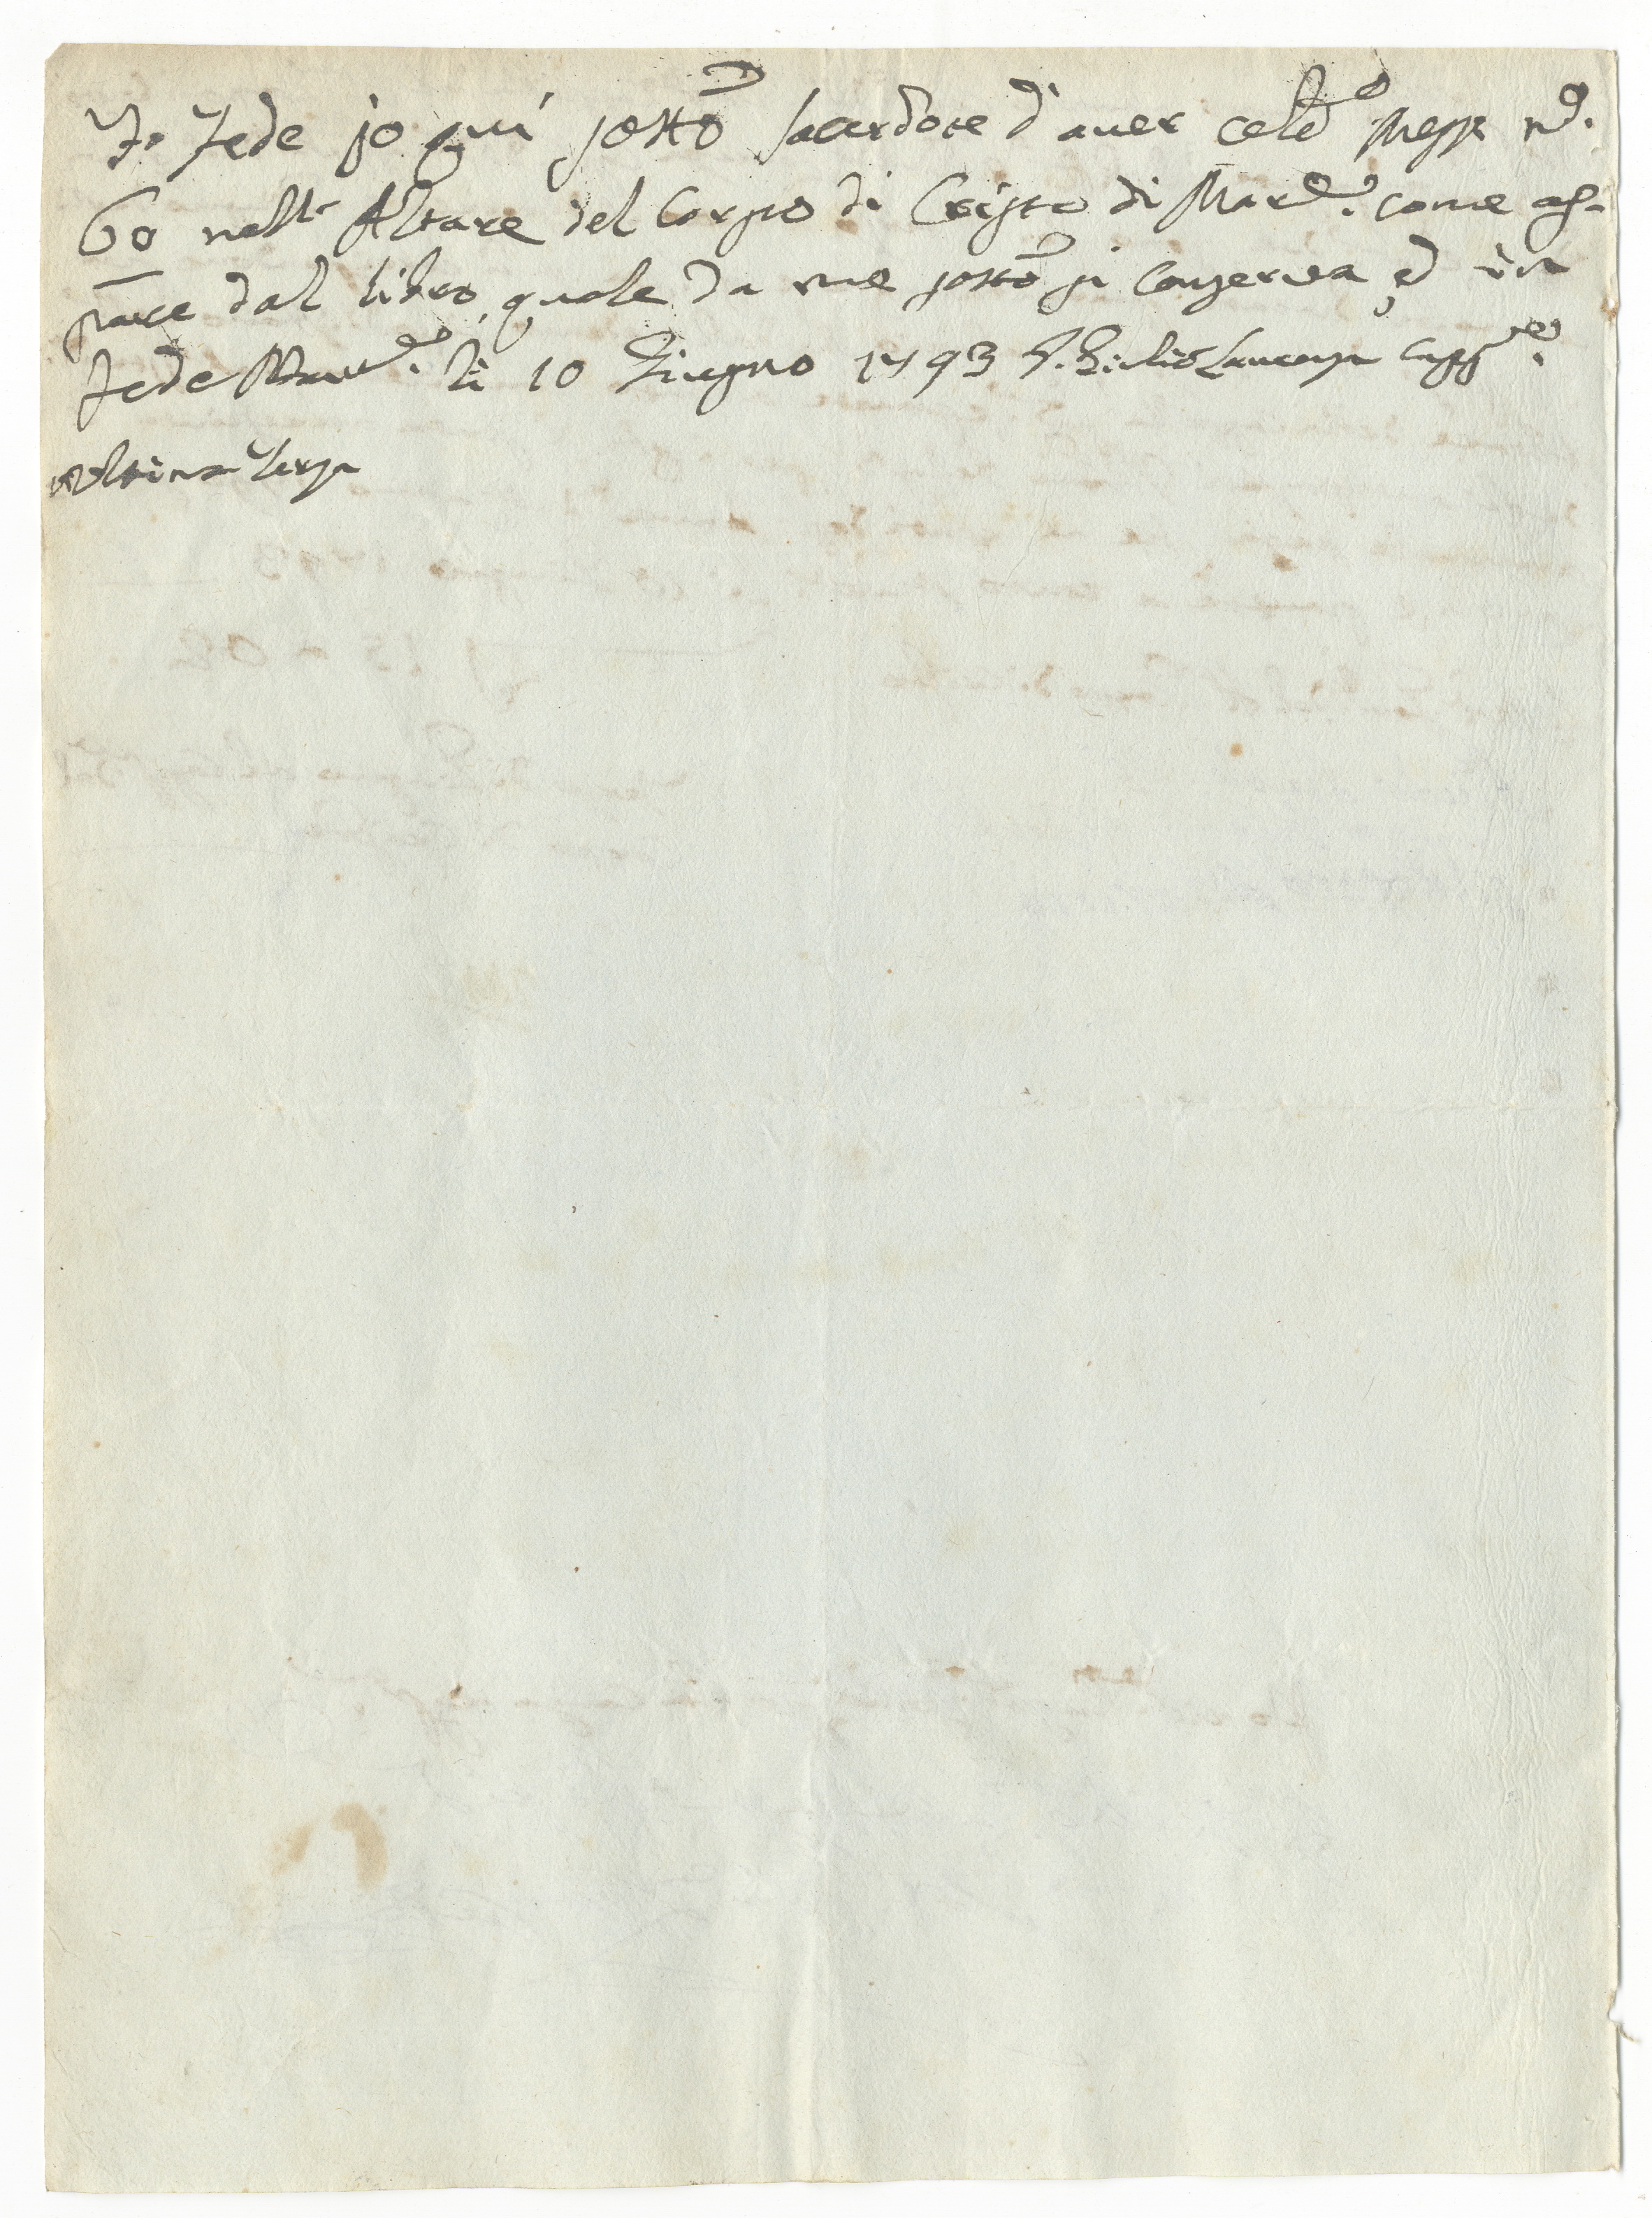 Fo Fede jo quí sotto sacerdote d'aver celeb.o Messe n.o
60 nell' Altare del Corpo di Cristo di Mar.e come ap-
pare dal libro, quale da me sotto si conserva, ed in
fede Mar.e li 10 Giugno 1793 Capp.e
ultima terza